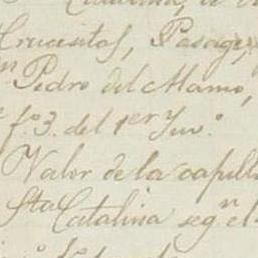 Catalina, de
Crucesitas, Pasage,
n Pedro del Mamo,
fº 3. del 1er Juº
Valor de la capill
Sta Catalina segn el